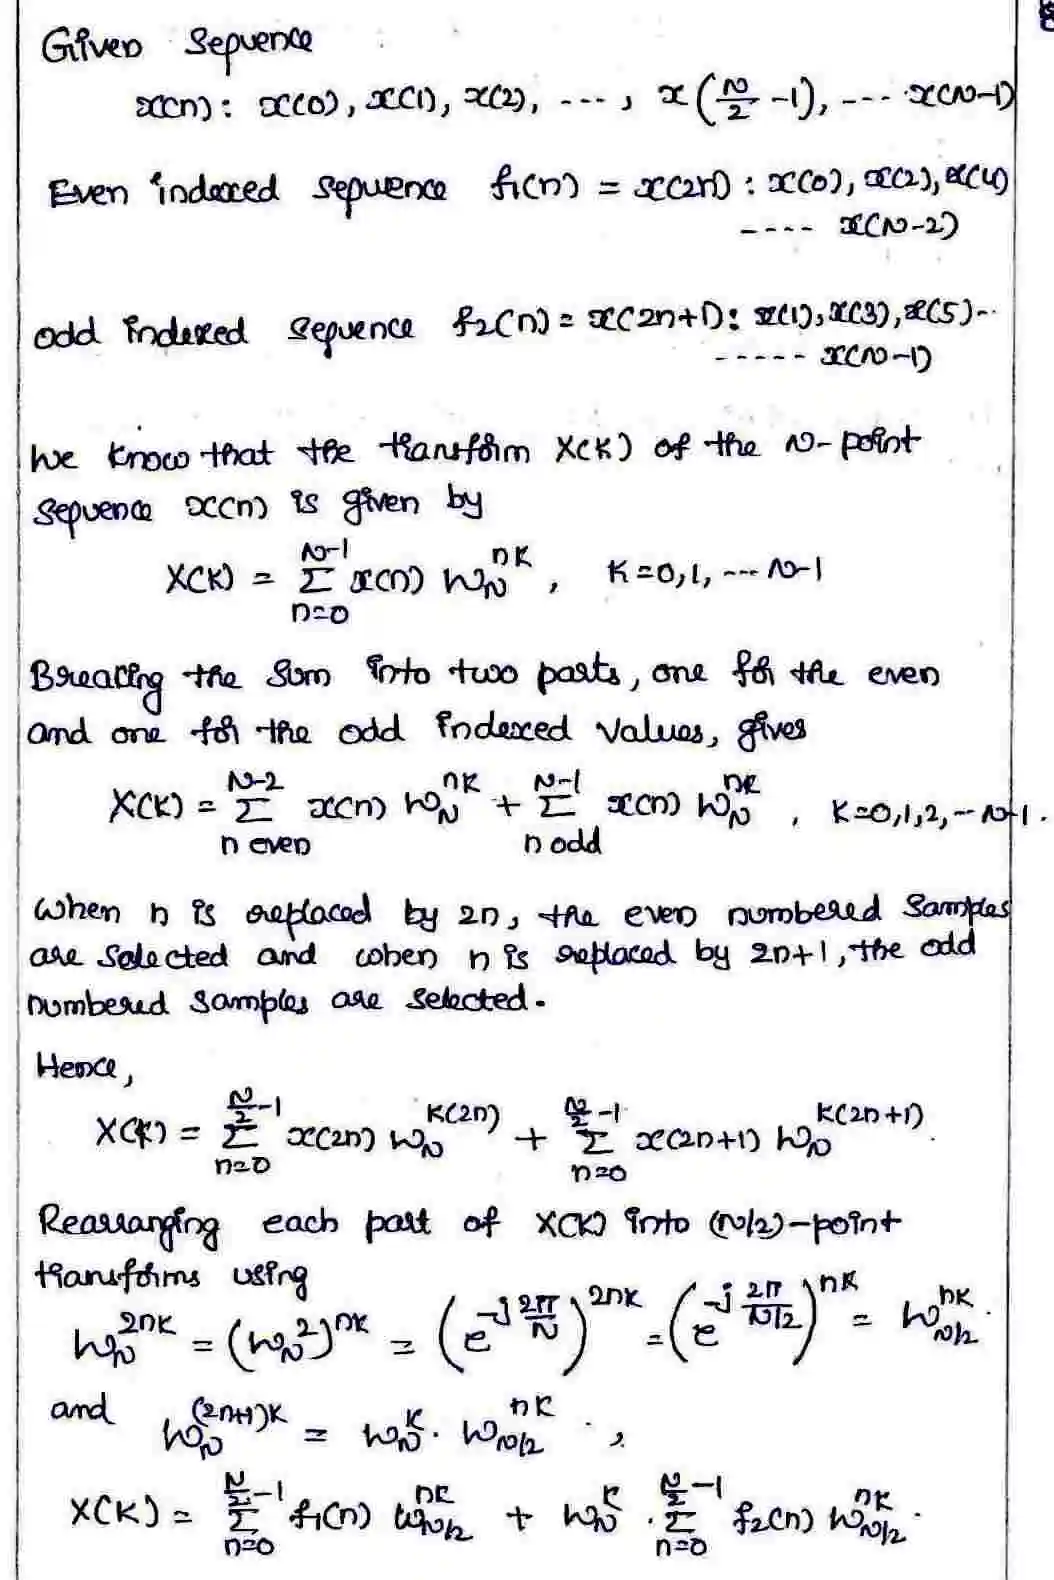 Given Sequence
x(n): x(0), x(1), x(2), ---, x(N/2 -1), --- x(N-1)
Even indexed sequence f1(n) = x(2n): x(0), x(2), x(4)
---- x(N-2)
odd indexed sequence f2(n) = x(2n+1): x(1), x(3), x(5)--
----- x(N-1)
We know that the transform X(K) of the N-point
sequence x(n) is given by
X(K) = Σ_{n=0}^{N-1} x(n) W_N^{nK}, K=0,1, --- N-1
Breaking the sum into two parts, one for the even
and one for the odd indexed values, gives
X(K) = Σ_{n even}^{N-2} x(n) W_N^{nK} + Σ_{n odd}^{N-1} x(n) W_N^{nK}, K=0,1,2,--N-1.
When n is replaced by 2n, the even numbered samples
are selected and when n is replaced by 2n+1, the odd
numbered samples are selected.
Hence,
X(K) = Σ_{n=0}^{N/2 -1} x(2n) W_N^{K(2n)} + Σ_{n=0}^{N/2 -1} x(2n+1) W_N^{K(2n+1)}.
Rearranging each part of X(K) into (N/2)-point
transforms using
W_N^{2nK} = (W_N^2)^{nK} = (e^{-j 2π/N})^{2nK} = (e^{-j 2π/(N/2)})^{nK} = W_{N/2}^{nK}.
and W_N^{(2n+1)K} = W_N^K . W_{N/2}^{nK} . ,
X(K) = Σ_{n=0}^{N/2 -1} f1(n) W_{N/2}^{nK} + W_N^K . Σ_{n=0}^{N/2 -1} f2(n) W_{N/2}^{nK}.